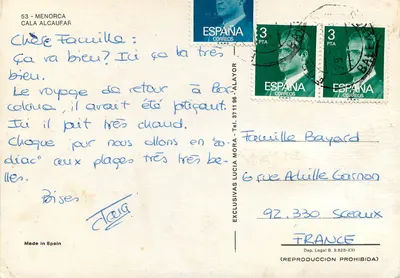 53 - MENORCA
CALA ALCAUFAR
Chère Famille :
Ça va bien? Ici ça va très
bien.
Le voyage de retour à Bar
celone, il avait été fatigant.
Ici il fait très chaud.
Chaque jour nous allons en "Zo
diac" aux plages très très be-
lles.
Bises
Made in Spain
EXCLUSIVAS LUCIA MORA - Tel. 37 11 96 - ALAYOR
ESPAÑA
CORREOS
3
PTA
ESPAÑA
CORREOS
3
PTA
ESPAÑA
CORREOS
Famille Bayard
6 rue Achille Garnon
92.330 Sceaux
FRANCE
Dep. Legal B. 9.828-XXI
(REPRODUCCION PROHIBIDA)